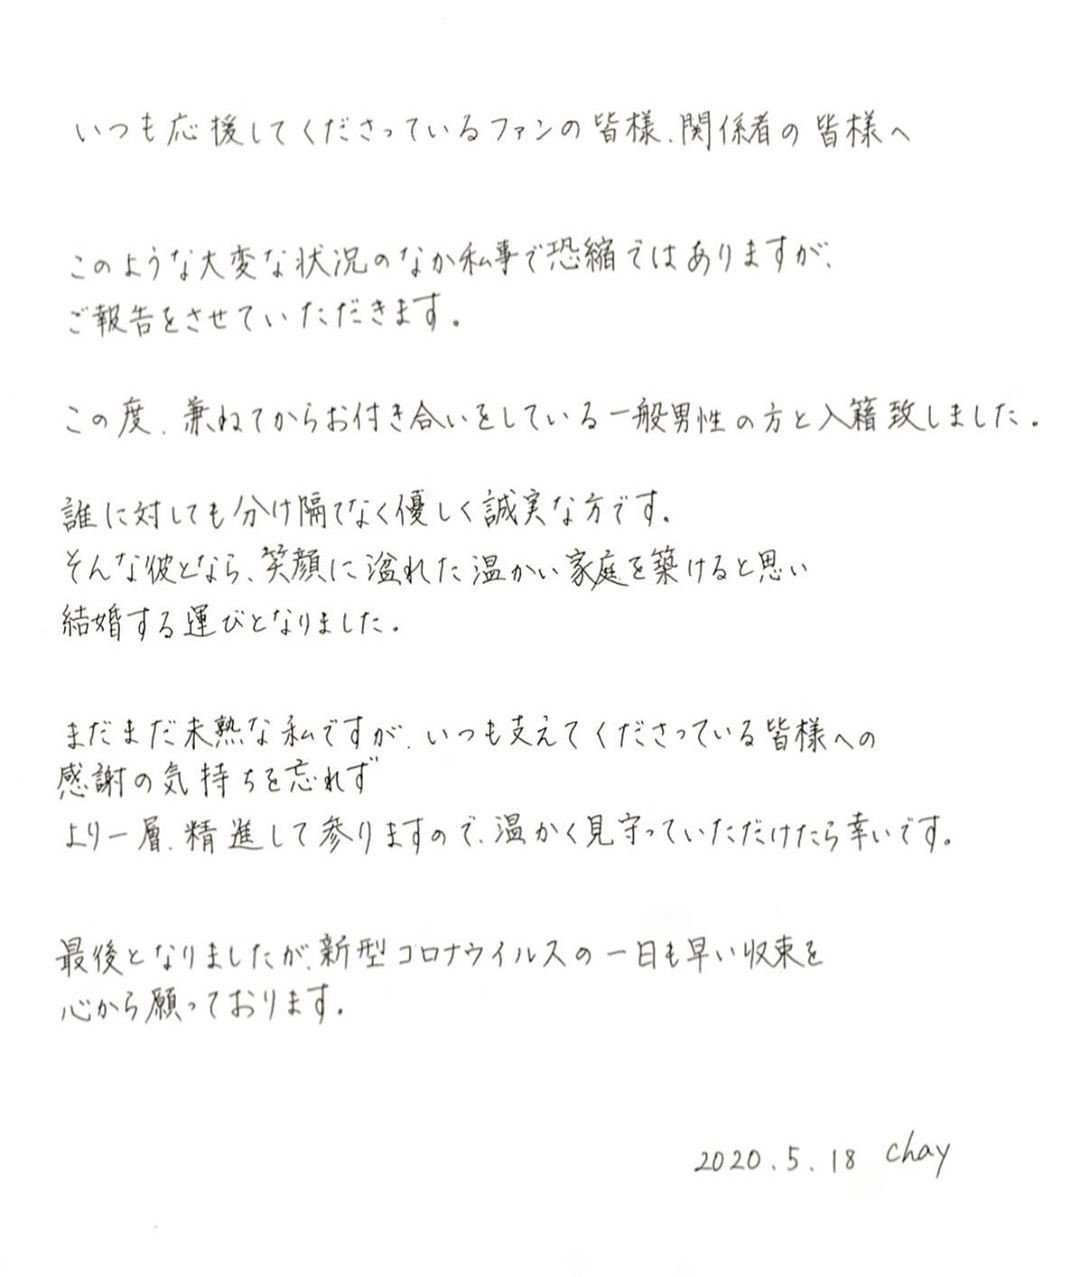 いつも応援してくださっているファンの皆様、関係者の皆様へ
このような大変な状況のなか私事で恐縮ではありますが、
ご報告をさせていただきます。
この度、兼ねてからお付き合いをしている一般男性の方と入籍致しました。
誰に対しても分け隔てなく優しく誠実な方です。
そんな彼となら、笑顔に溢れた温かい家庭を築けると思い
結婚する運びとなりました。
まだまだ未熟な私ですが、いつも支えてくださっている皆様への
感謝の気持ちを忘れず
より一層、精進して参りますので、温かく見守っていただけたら幸いです。
最後となりましたが、新型コロナウイルスの一日も早い収束を
心から願っております。
2020.5.18 chay